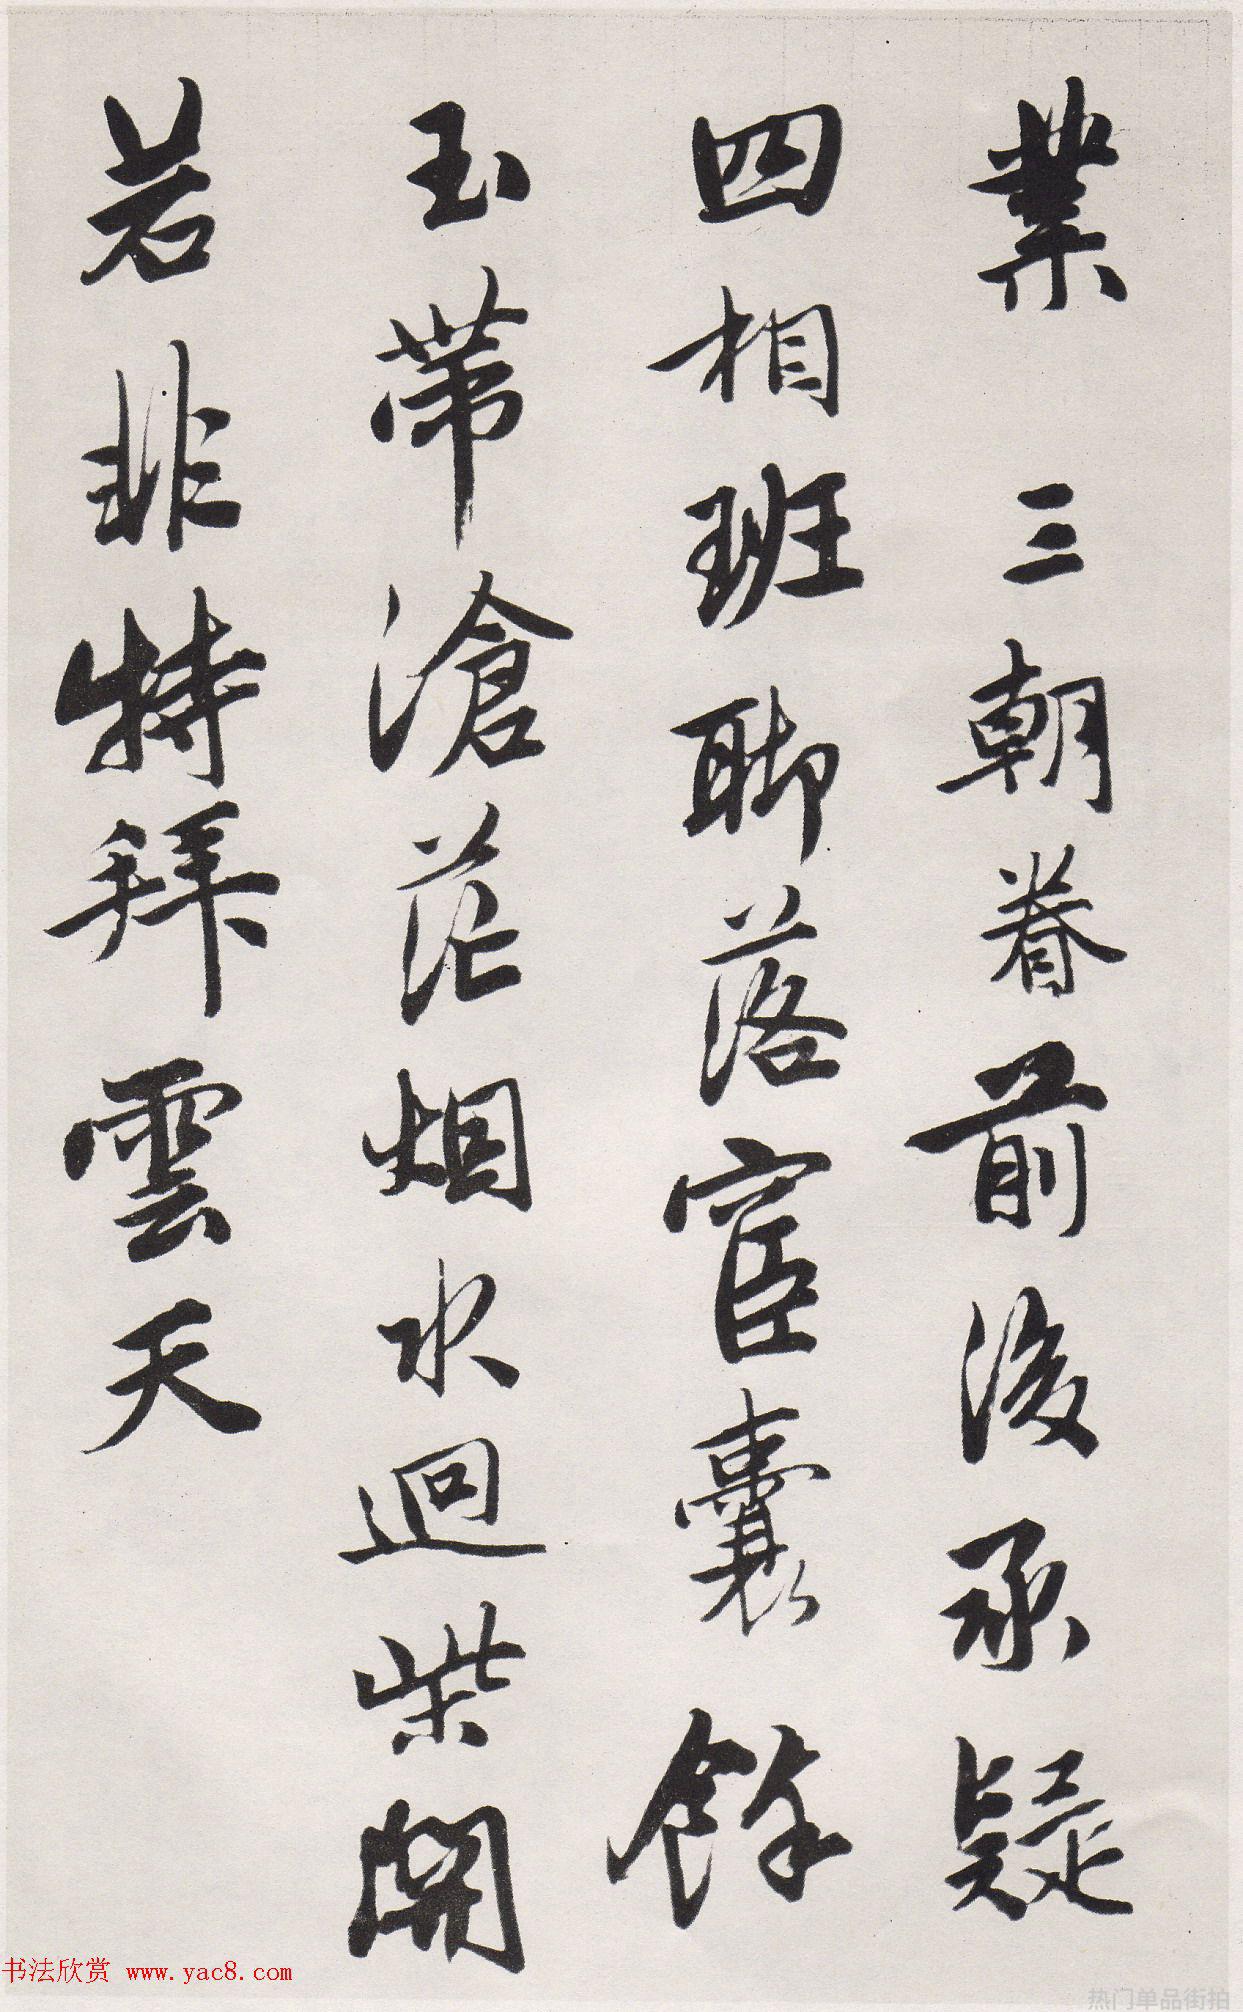 業三朝眷前後承疑
四相班聊落宦囊餘
玉帶滄茫烟水迴柴關
若非特拜雲天
书法欣赏 www.yac8.com
热门单品街拍